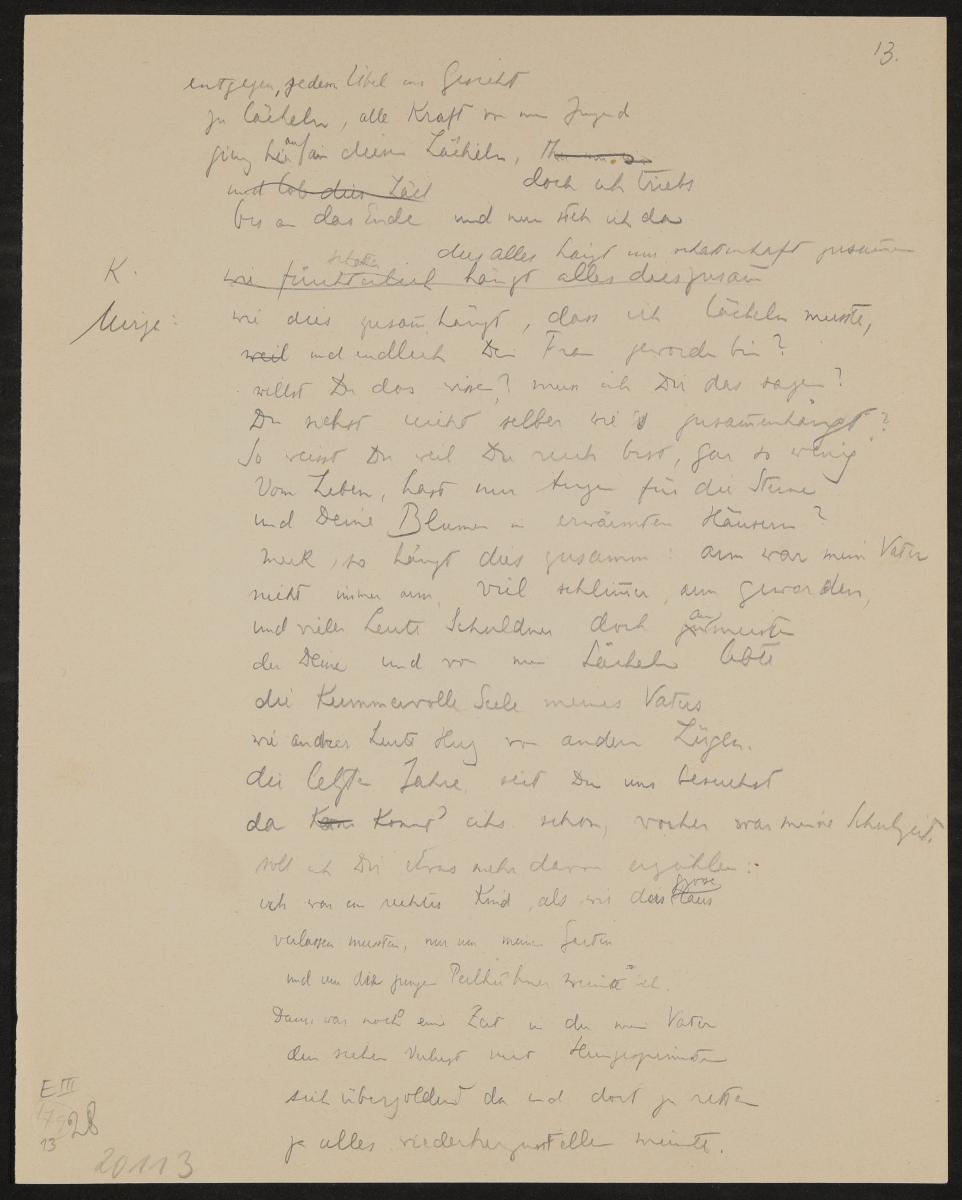 13.
entgegen, jedem Übel ins Gesicht
zu lächeln, alle Kraft von meiner Jugend
ging hin auf in diesem Lächeln,
und lob dies doch ich triebs
bis an das Ende und nun steh ich da
dies alles hängt nun schattenhaft zusammen
K. wie fürchterlich hängt alles dies zusam̄
wie dies zusam̄ hängt, dass ich lächeln musste,
weil und endlich Deine Frau geworden bin?
willst Du das wissen? muss ich Dir das sagen?
Du siehst nicht selber wie's zusammenhängt?
So weisst Du weil Du reich bist, gar so wenig
Vom Leben, hast nur Augen für die Sterne
und Deine Blumen in erwärmten Häusern?
Merk, so hängt dies zusamm: arm war mein Vater
nicht immer arm, viel schlimmer, arm geworden,
und vieler Leute Schuldner doch am meisten
der Deine und von meinem Lächeln lebte
die kummervolle Seele meines Vaters
wie andrer Leute Herz von andern Lügen.
die letzten Jahre, seit Du uns besuchst
da Konnt' ichs schon, vorher war meine Schulzeit.
soll ich Dir etwas mehr davon erzählen:
ich war ein rechtes Kind, als wir das grosse Haus
verlassen mussten, nur um meinen Garten
und um die jungen Perlhühner weinte ich.
Dann war noch eine Zeit in der mein Vater
den sichen Verlust mit
sich übergoldend da und dort zu retten
ja alles wiederherzustellen meinte.
E III
28
13
20113